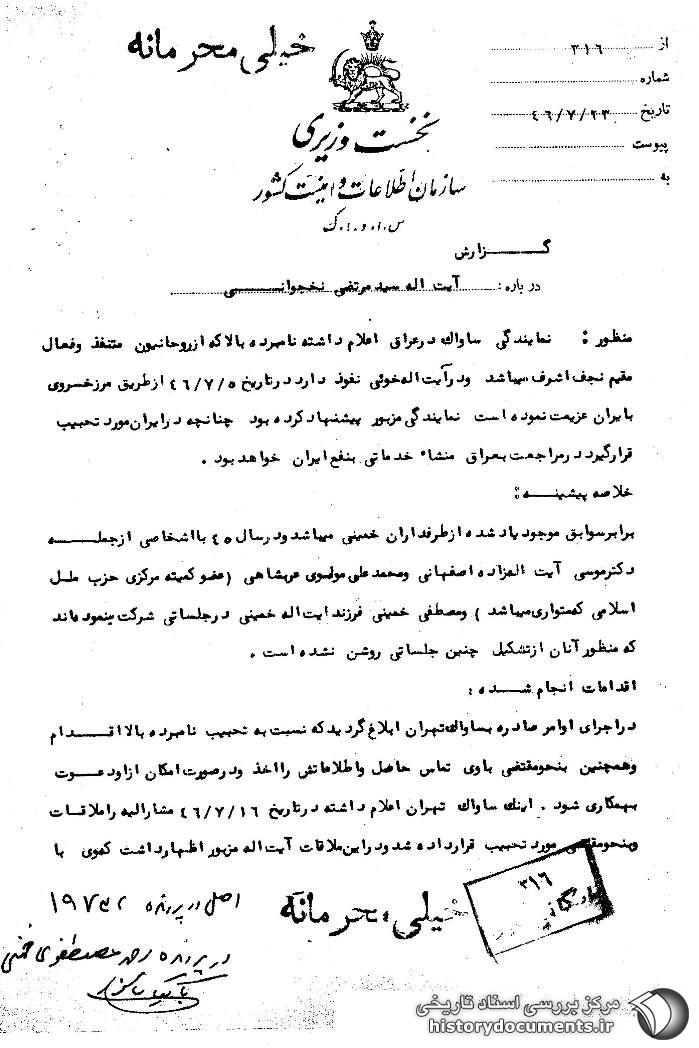 خیلی محرمانه
از ۳۱۶
شماره
تاریخ ۴۶/۷/۲۳
پیوست
به
نخست وزیری
سازمان اطلاعات و امنیت کشور
س.ا.و.ا.ک
گــــزارش
درباره: آیت اله سید مرتضی نخجوانــــی
منظور: نمایندگی ساواك درعراق اعلام داشته نامبرده بالا که ازروحانیون متنفذ وفعال
مقیم نجف اشرف میباشد ودرآیت اله خوئی نفوذ دارد درتاریخ ۴۶/۷/۵ ازطریق مرزخسروی
بایران عزیمت نموده است نمایندگی مزبور پیشنهاد کرده بود چنانچه درایران مورد تحبیب
قرارگیرد درمراجعت بعراق منشاء خدماتی بنفع ایران خواهد بود.
خلاصه پیشینــه:
برابرسوابق موجود یاد شده ازطرفداران خمینی میباشد ودرسال ۴۵ بااشخاصی ازجملــه
دکترموسی آیت اله زاده اصفهانی ومحمد علی مولوی عربشاهی (عضو کمیته مرکزی حزب ملل
اسلامی که متواری میباشد) ومصطفی خمینی فرزند ایت اله خمینی درجلساتی شرکت مینموده اند
که منظور آنان ازتشکیل چنین جلساتی روشن نشده است.
اقدامات انجام شــده:
دراجرای اوامر صادره بساواك تهران ابلاغ گردید که نسبت به تحبیب نامبرده بالا اقــدام
وهمچنین بنحومقتضی باوی تماس حاصل واطلاعاتش رااخذ ودرصورت امکان ازاودعــوت
بهمکاری شود. اینك ساواك تهران اعلام داشته درتاریخ ۴۶/۷/۱۶ مشارالیه راملاقات
وبنحومقتضی مورد تحبیب قرارداده شد ودراین ملاقات آیت اله مزبور اظهارداشت که وی با
۳۱۶
بایگانی
خیلی محرمانه
اصل در پرونده ۱۹۷۳۲
در پرونده مصطفوی خمینی
مرکز بررسی اسناد تاریخی
historydocuments.ir